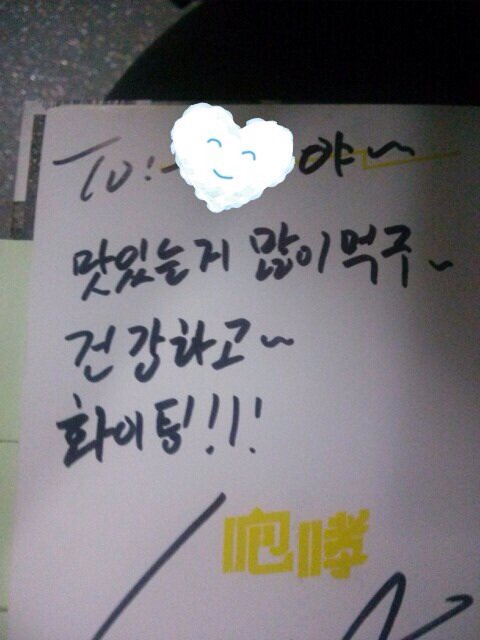 To: 야~
맛있는거 많이먹구~
건강하고~
화이팅!!!
咆哮